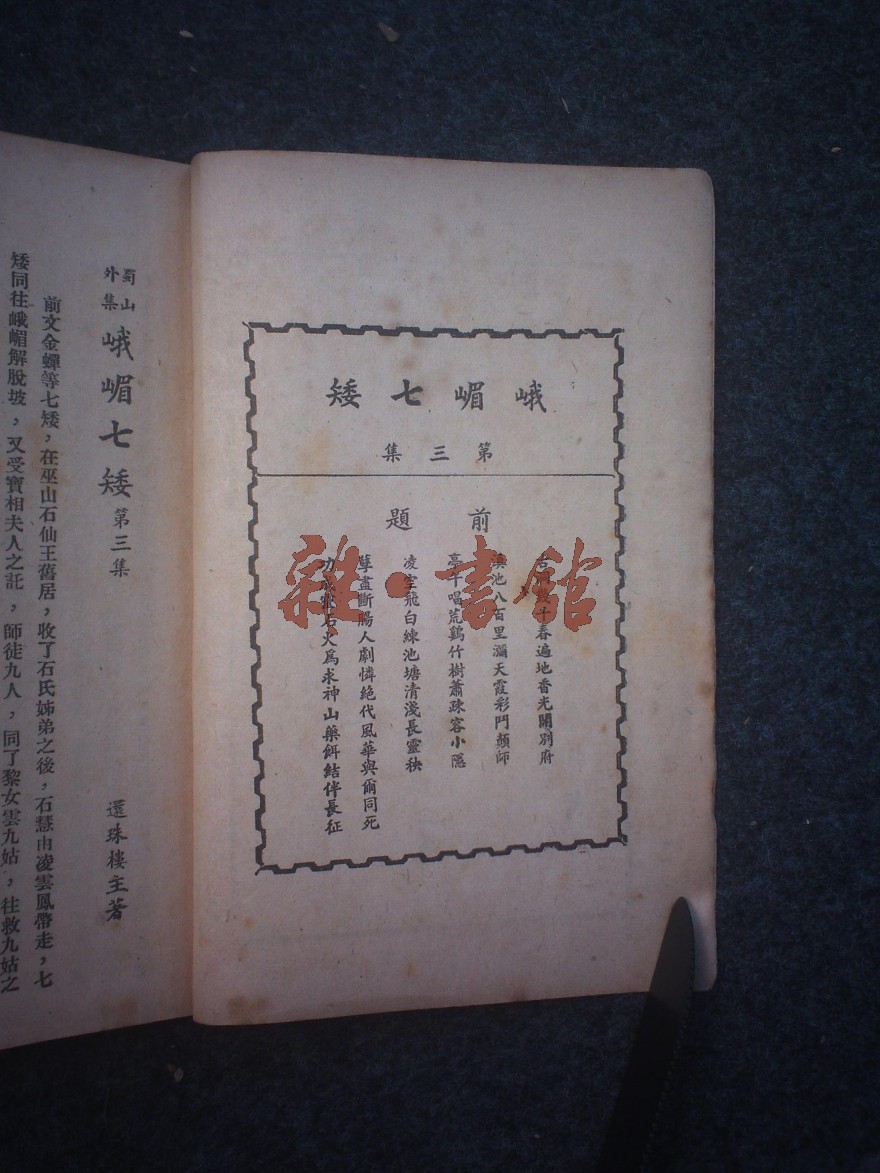 峨嵋七矮
第三集
前題
春遍地香光開別府
池八百里瀰天霞彩鬥顛師
亭午唱荒鷄竹樹蕭疎容小隱
凌空飛白練池塘清淺長靈秧
草盡斷腸人劇憐絕代風華與爾同死
功成石火爲求神山藥餌結伴長征
雜·書館
蜀山外集
峨嵋七矮
第三集
還珠樓主著
前文金蟬等七矮，在巫山石仙王舊居，收了石氏姊弟之後，石慧由凌雲鳳帶走，七
矮同往峨嵋解脫坡，又受寶相夫人之託，師徒九人，同了黎女雲九姑，往救九姑之